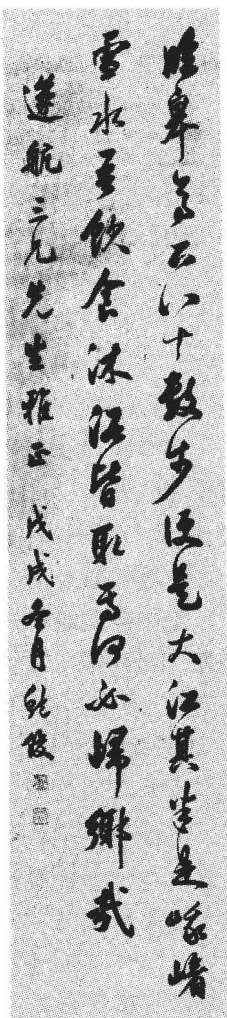 臨皋亭下八十數步便是大江其半是峨嵋
雪水吾飲食沐浴皆取焉何必歸鄉哉
遂航三兄先生雅正 戊戌冬月 鮑俊